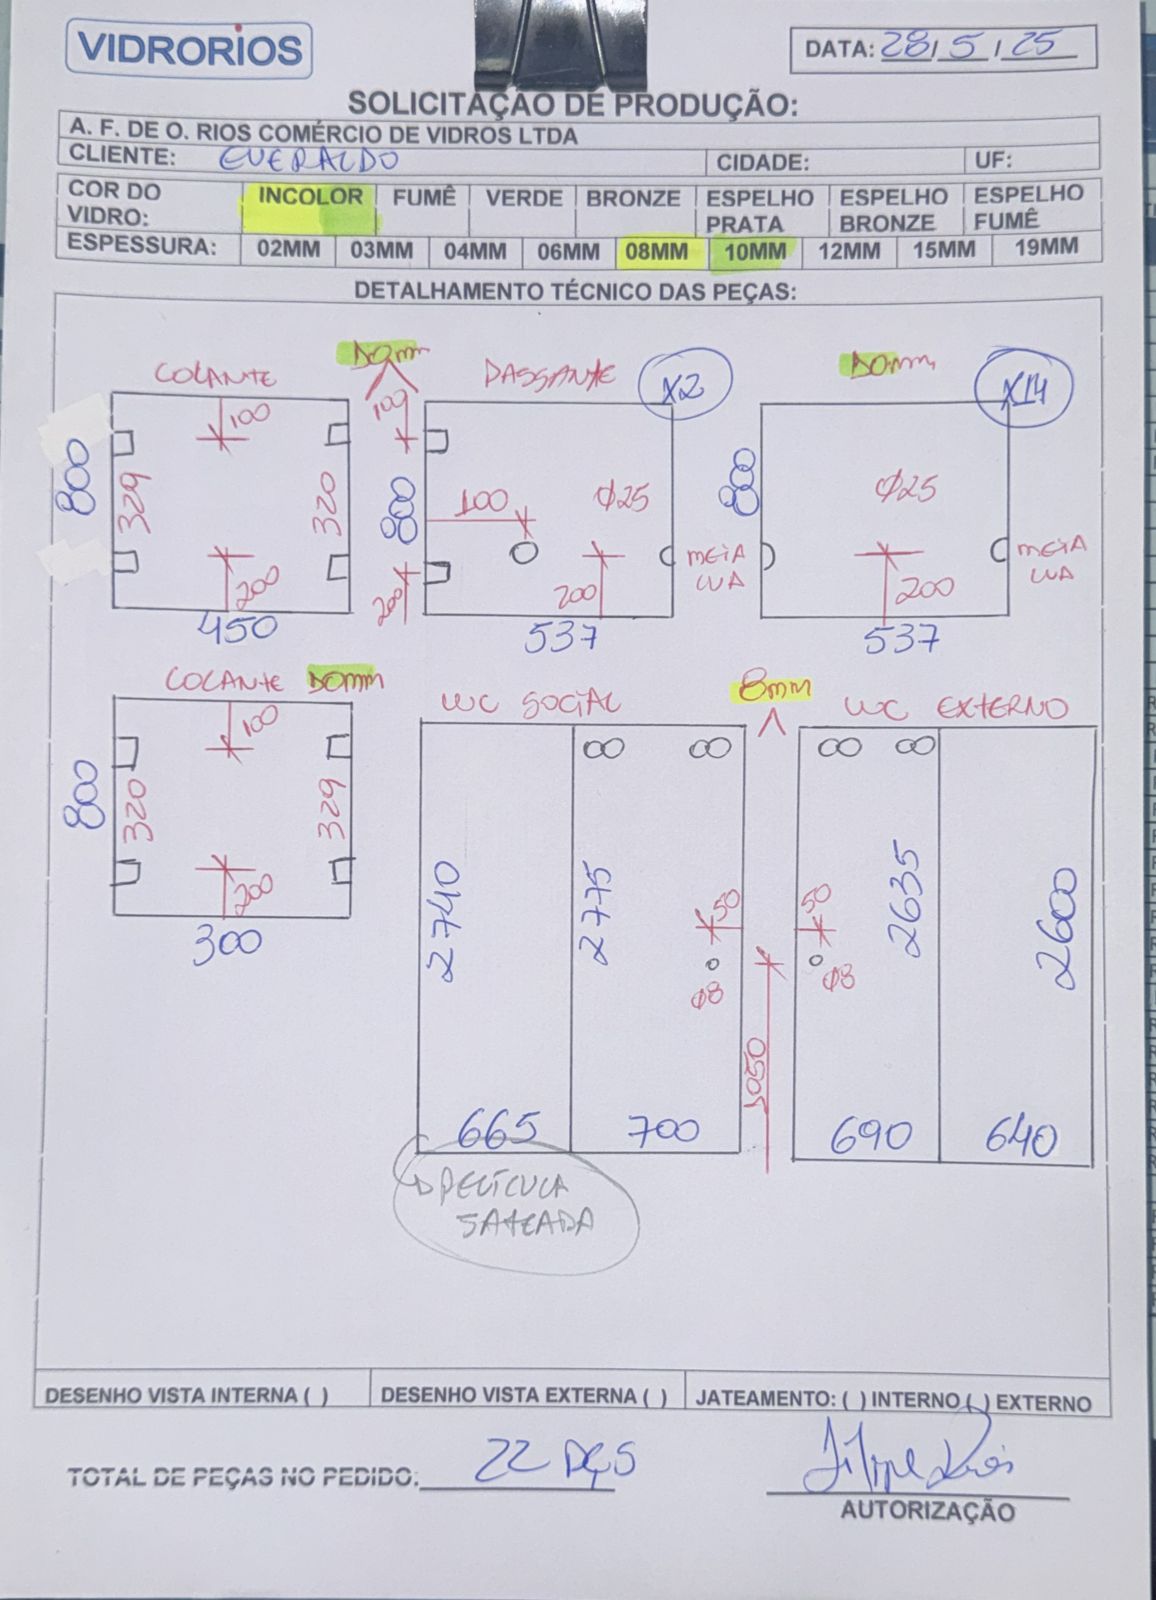 VIDRORIOS
DATA: 28/5/25
SOLICITAÇÃO DE PRODUÇÃO:
A. F. DE O. RIOS COMÉRCIO DE VIDROS LTDA
CLIENTE: EVERALDO CIDADE: UF:
COR DO VIDRO: INCOLOR FUMÊ VERDE BRONZE ESPELHO PRATA ESPELHO BRONZE ESPELHO FUMÊ
ESPESSURA: 02MM 03MM 04MM 06MM 08MM 10MM 12MM 15MM 19MM
DETALHAMENTO TÉCNICO DAS PEÇAS:
COLANTE
100
800
329
320
200
450
10mm
PASSANTE
X2
100
800
200
100
Ø25
200
MEIA
LUA
537
10mm
X14
800
Ø25
200
MEIA
LUA
537
COLANTE 10mm
100
800
320
329
200
300
WC SOCIAL
2740
2775
50
Ø8
665
700
PELÍCULA
SATEADA
8mm
1050
WC EXTERNO
50
Ø8
2635
2600
690
640
DESENHO VISTA INTERNA ( ) DESENHO VISTA EXTERNA ( ) JATEAMENTO: ( ) INTERNO ( ) EXTERNO
TOTAL DE PEÇAS NO PEDIDO: 22 PÇS
Filipe Rios
AUTORIZAÇÃO